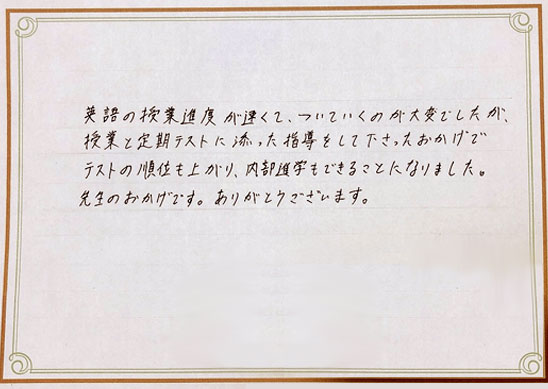 英語の授業進度が速くて、ついていくのが大変でしたが、
授業と定期テストに添った指導をして下さったおかげで
テストの順位も上がり、内部進学もできることになりました。
先生のおかげです。ありがとうございます。